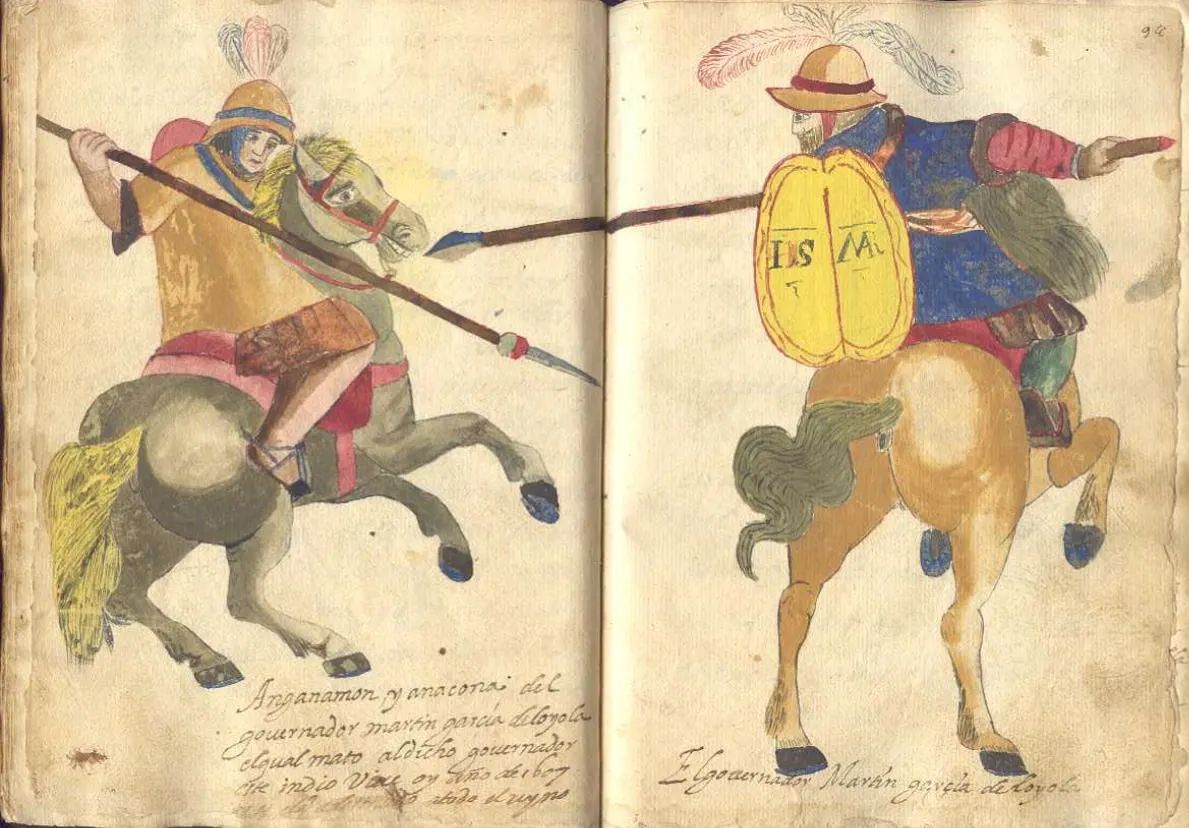 Anganamon yanacona del
governador martin garcia de loyola
elqual mato aldicho governador
este indio Vive oy año de 1607
atodo el reyno
94
IHS MA
El governador Martin garcia de loyola